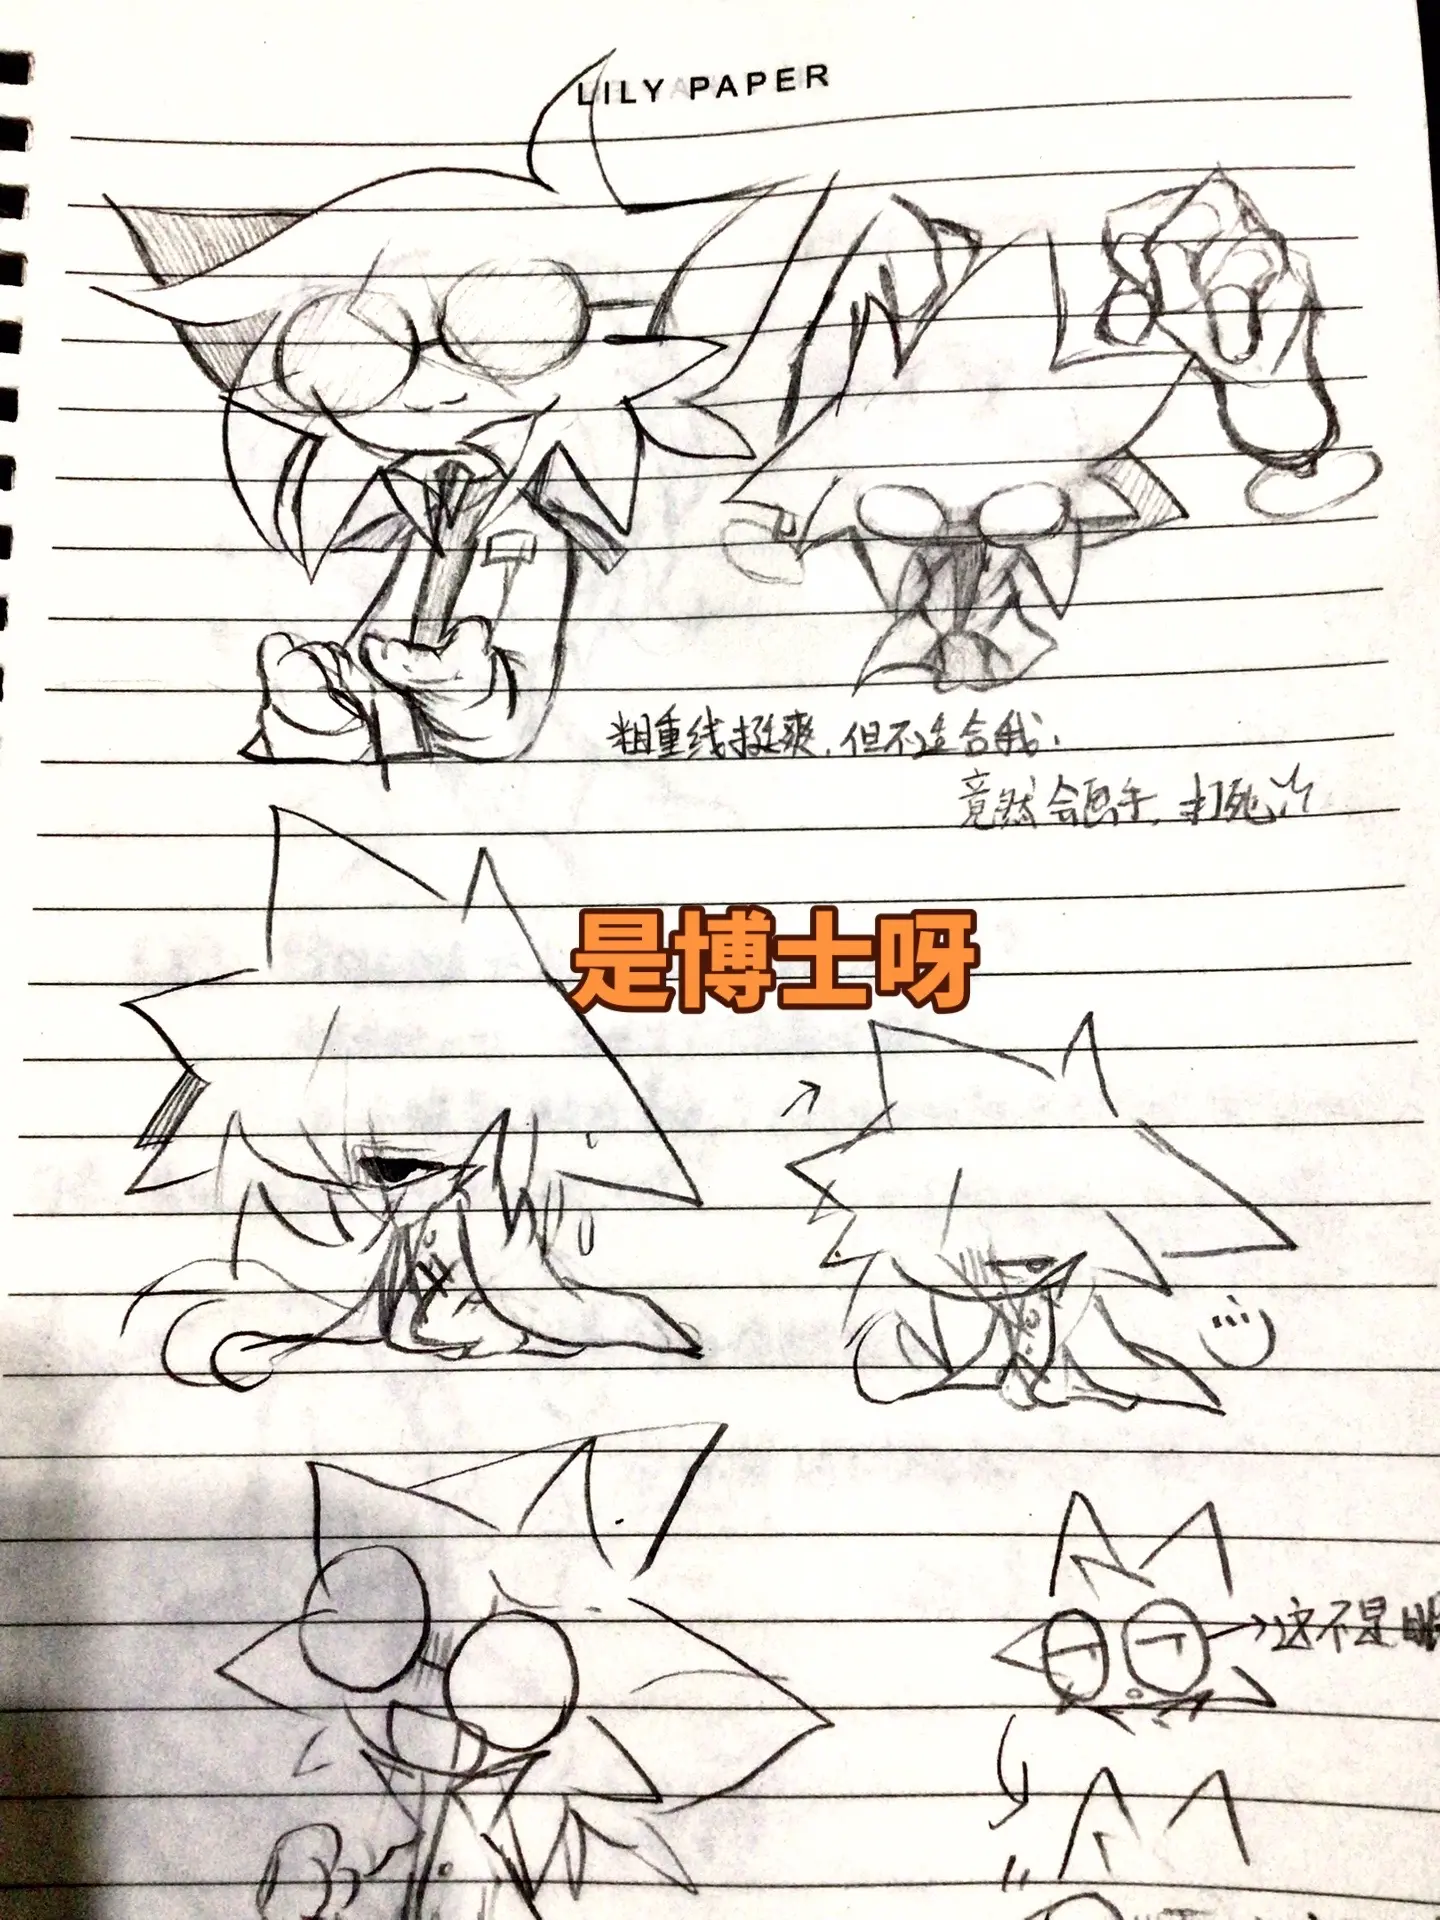 LILY PAPER
粗重线挺爽，但不适合我．
竟然会画手，打死
是博士呀
这不是